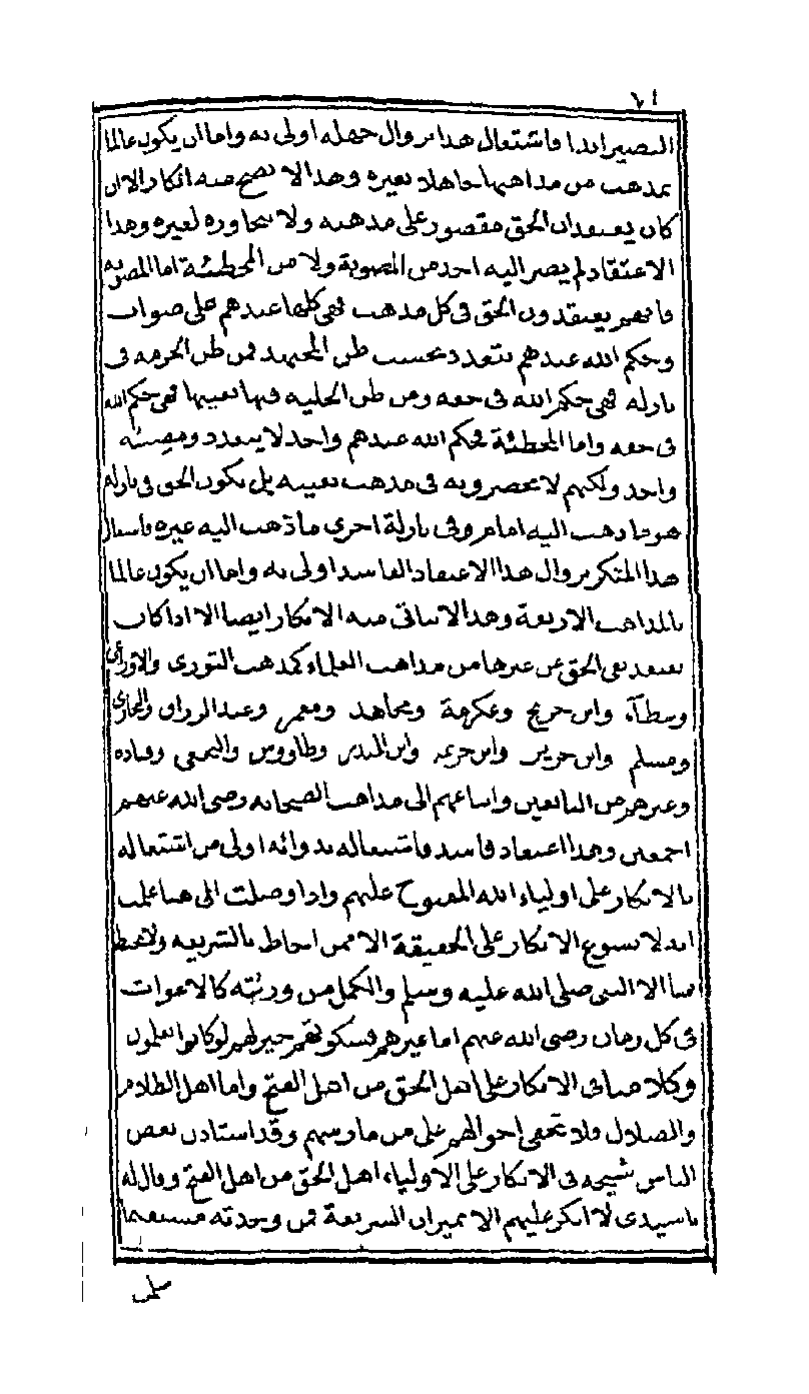 البصير ابدا فاشتغال هذا بزوال جهله اولى به واما ان يكون عالما
بمذهب من مذاهبها جاهلا بغيره وهذا لا يصح منه انكار الا ان
كان يعتقد ان الحق مقصور على مذهبه ولا يتجاوره لغيره وهذا
الاعتقاد لم يصر اليه احد من المصوبة ولا من المخطئة اما المصوبه
فانهم يعتقدون الحق في كل مذهب فهي كلها عندهم على صواب
وحكم الله عندهم يتعدد بحسب ظن المجتهد فمن ظن الحرمه في
نازله فهي حكم الله في حقه ومن ظن الحليه فيها بعينها فهي حكم الله
في حقه واما المخطئة فحكم الله عندهم واحد لا يتعدد ومصيبه
واحد ولكنهم لا يحصرونه في مذهب بعينه بل يكون الحق في نازله
هو ما ذهب اليه امام وفي نازلة اخرى ما ذهب اليه غيره فاشتغال
هذا المنكر بزوال هذا الاعتقاد الفاسد اولى به واما ان يكون عالما
بالمذاهب الاربعة وهذا لا يتاتى منه الانكار ايضا الا اذا كان
يعتقد نفي الحق عن غيرها من مذاهب العلماء كمذهب الثورى والاوزاعى
وعطاء وابن جريج وعكرمة ومجاهد ومعمر وعبد الرزاق والبخارى
ومسلم وابن جرير وابن خزيمه وابن المنذر وطاووس والنخعى وقتاده
وغيرهم من التابعين واتباعهم الى مذاهب الصحابه رضى الله عنهم
اجمعين وهذا اعتقاد فاسد فاشتغاله بدوائه اولى من اشتغاله
بالانكار على اولياء الله المفتوح عليهم واذا وصلت الى هنا علمت
انه لا يسوغ الانكار على الحقيقة الا ممن احاط بالشريعه ولا يحيط
بها الا النبى صلى الله عليه وسلم والكمل من ورثته كالاغوات
فى كل زمان رضى الله عنهم اما غيرهم فسكوتهم خير لهم لو كانوا يعلمون
وكلامنا فى الانكار على اهل الحق من اهل الفتح واما اهل الظلام
والضلال فلا تخفى احوالهم على من مارسهم وقد استاذن بعض
الناس شيخه فى الانكار على الاولياء اهل الحق من اهل الفتح وقال له
يا سيدى لا انكر عليهم الا بميزان الشريعة فمن وجدته مستقيما